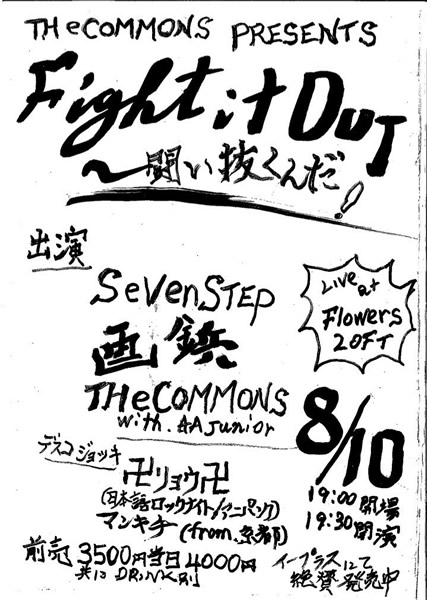 THeCOMMONS PRESENTS
Fight it OUT
〜闘い抜くんだ！
出演
SevenSTEP
画鋲
THeCOMMONS
with.AAJunior
Live at
Flowers
LOFT
8/10
19:00開場
19:30開演
デスコジョッキ
卍リョウ卍
(日本語ロックナイト/アニパンク)
マンキチ(from.京都)
前売3500円当日4000円
共にDRiNK別
イープラスにて
絶賛発売中